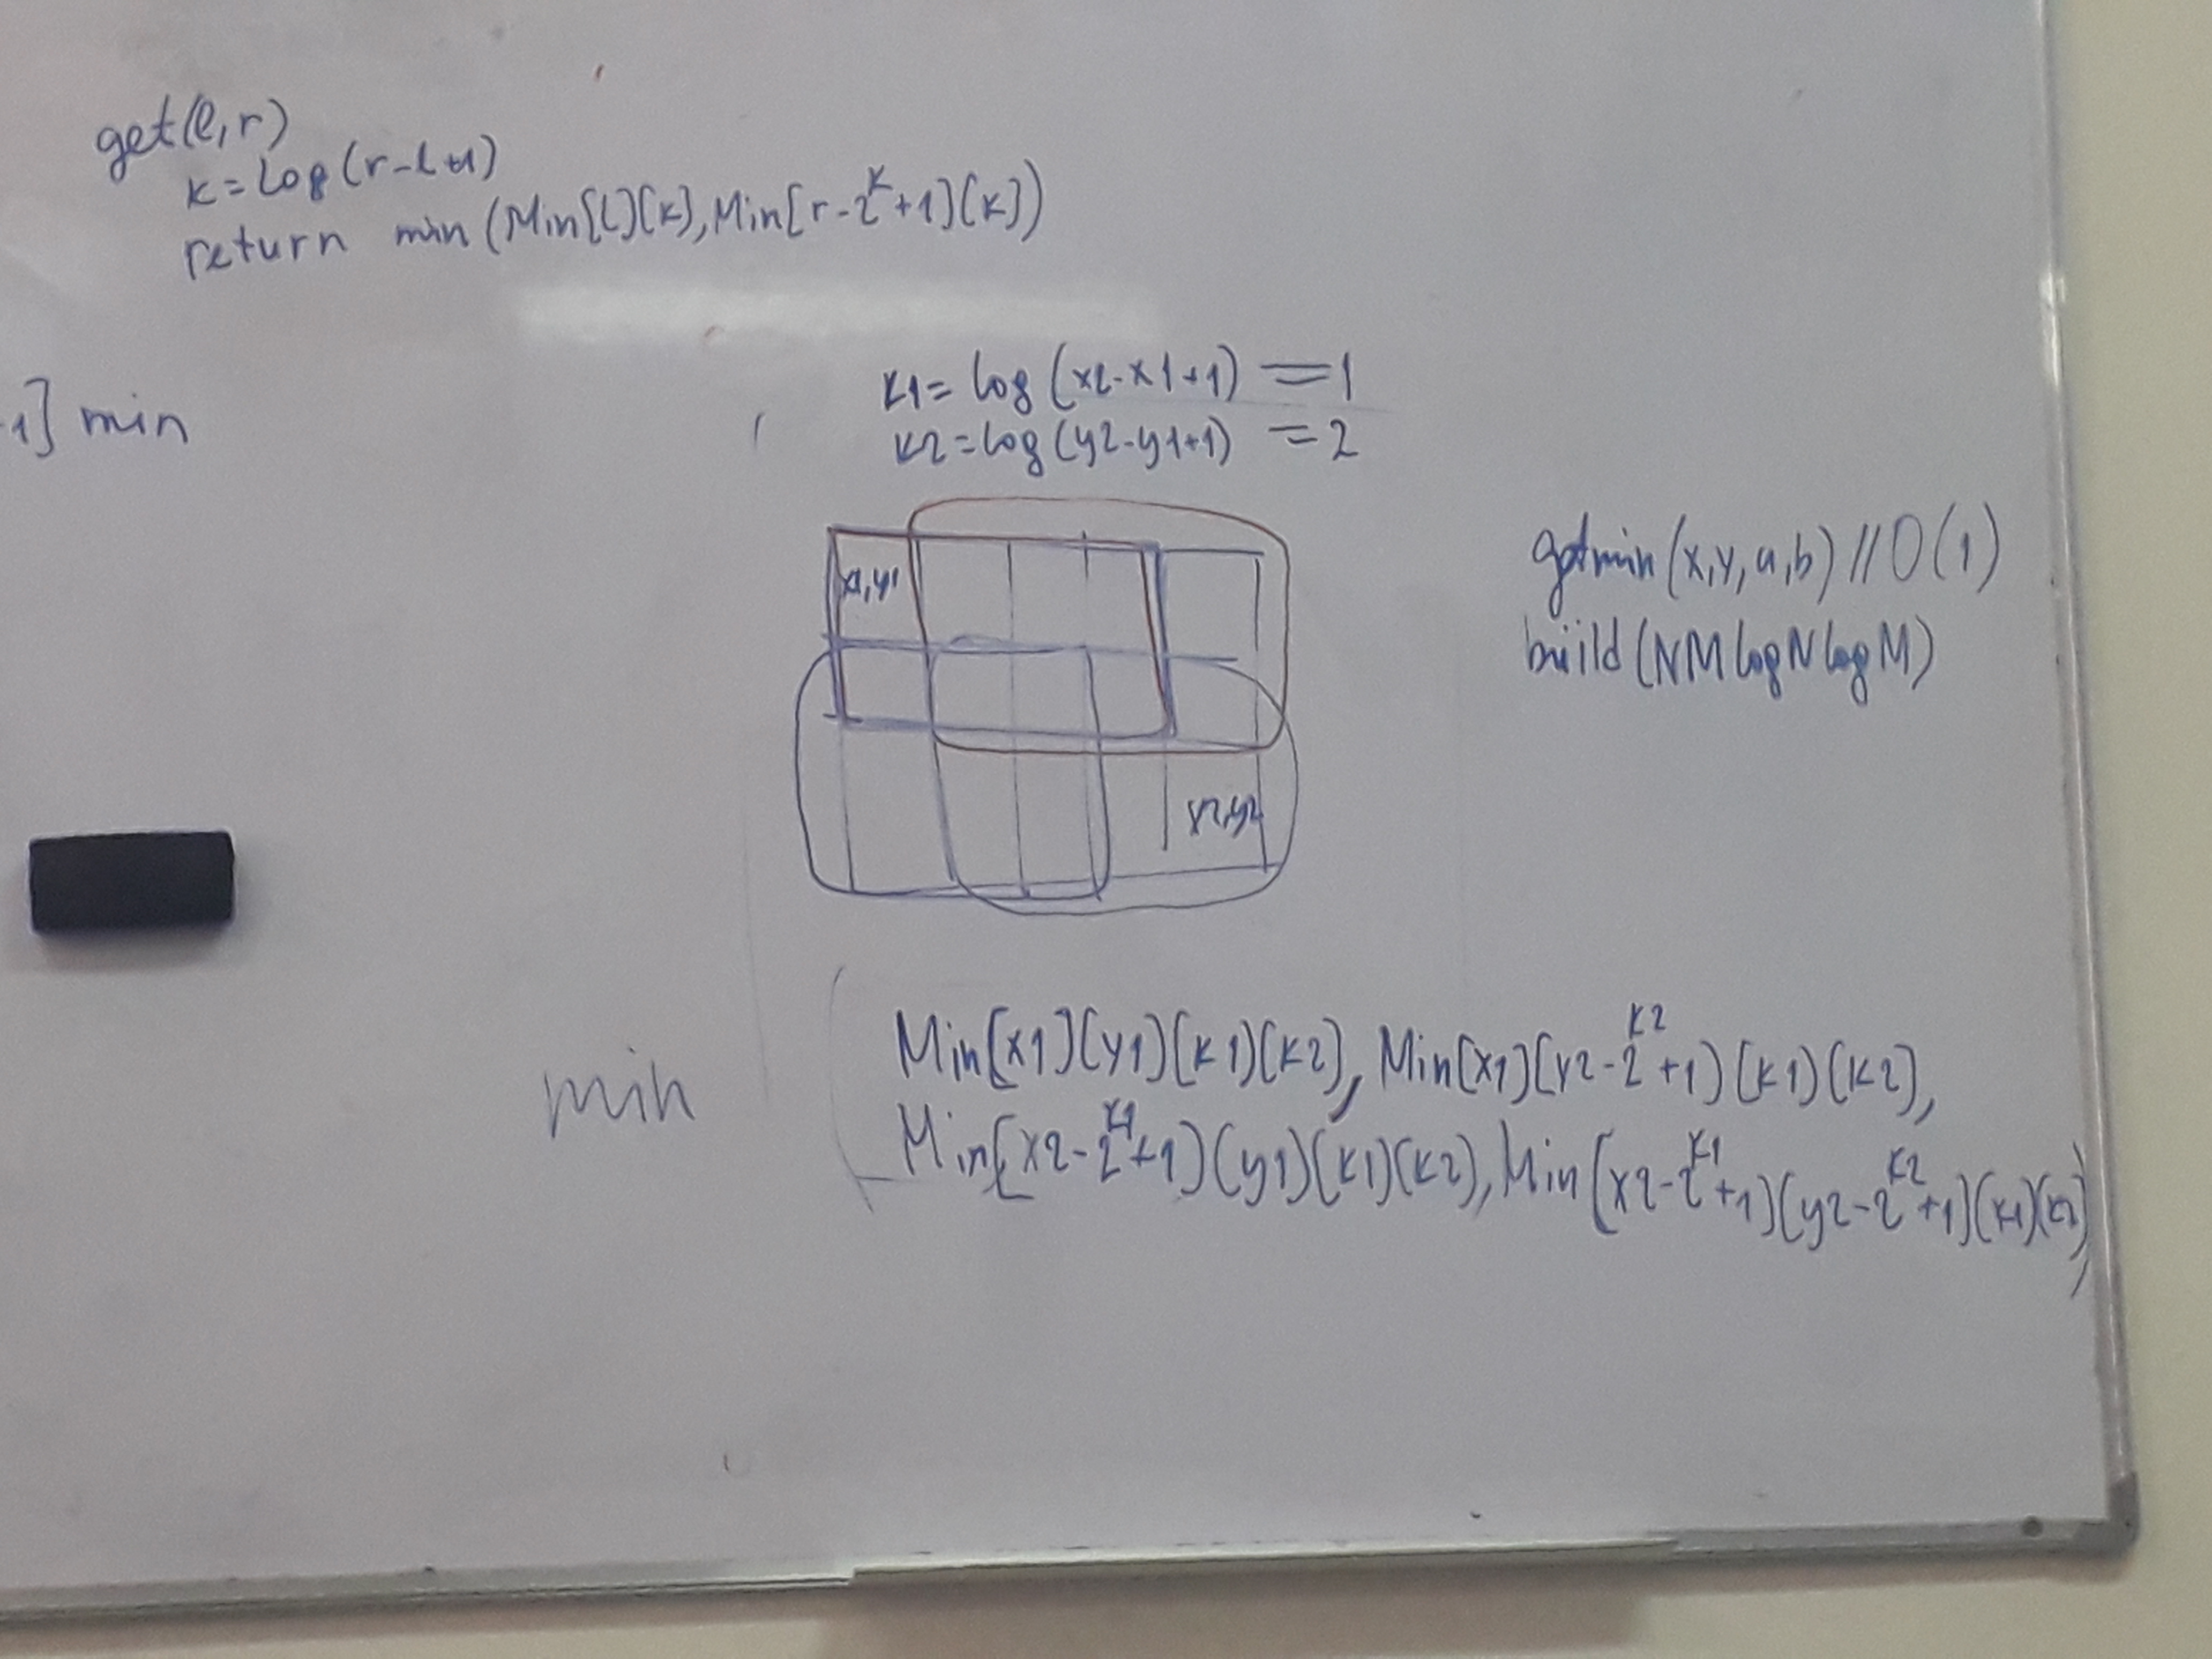 get(l,r)
k=log(r-l+1)
return min(Min[l][k],Min[r-2^k+1][k])
-1] min
k1=log(x2-x1+1) =1
k2=log(y2-y1+1) =2
x1,y1
x2,y2
getmin(x,y,a,b)//O(1)
build(NMlogNlogM)
min
Min[x1][y1][k1][k2],Min[x1][y2-2^k2+1][k1][k2],
Min[x2-2^k1+1][y1][k1][k2],Min[x2-2^k1+1][y2-2^k2+1][k1][k2])